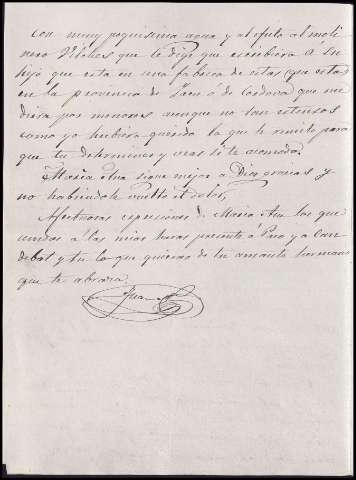 con muy poquisima agua y al efecto al moli
nero Vilches que le dije que escribiera a su
hijo que esta en una fabrica de estas (que esta)
en la provincia de Jaen ó de Cordova que me
diera pormenores aunque no tan estensos
como yo hubiera querido la que te remito para
que tu determines y veas si te acomoda.
Maria Ana sigue mejor a Dios gracias y
no habiendole vuelto el dolor,
Afectuosas espresiones de Maria Ana las que
unidas á las mias haras presente á Pura y a Car
y tu lo que quieras de tu amante hermano
que te abraza
Juan